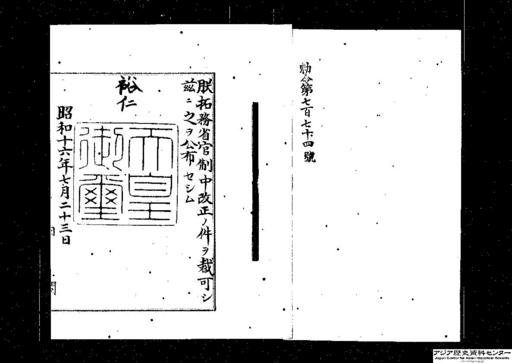 勅令第七百七十四號
朕拓務省官制中改正ノ件ヲ裁可シ
茲ニ之ヲ公布セシム
天皇
御璽
裕仁
昭和十六年七月二十三日
アジア歴史資料センター
Japan Center for Asian Historical Records